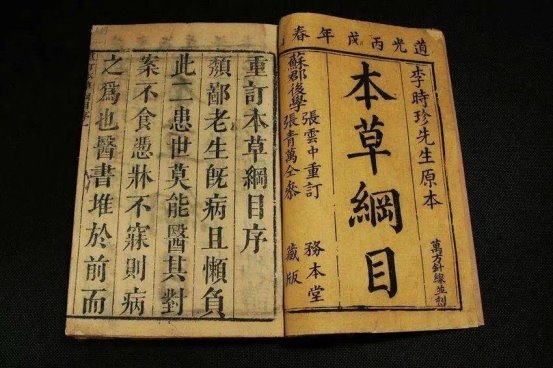 道光丙戌年春
李時珍先生原本
本草綱目
萬方針線並刻
張雲中重訂
蘇郡後學
張青萬仝參
務本堂
藏版
重訂本草綱目序
頹鄙老生旣病且懶負
此二患世莫能醫其對
案不食憑牀不寐則病
之爲也醫書堆於前而